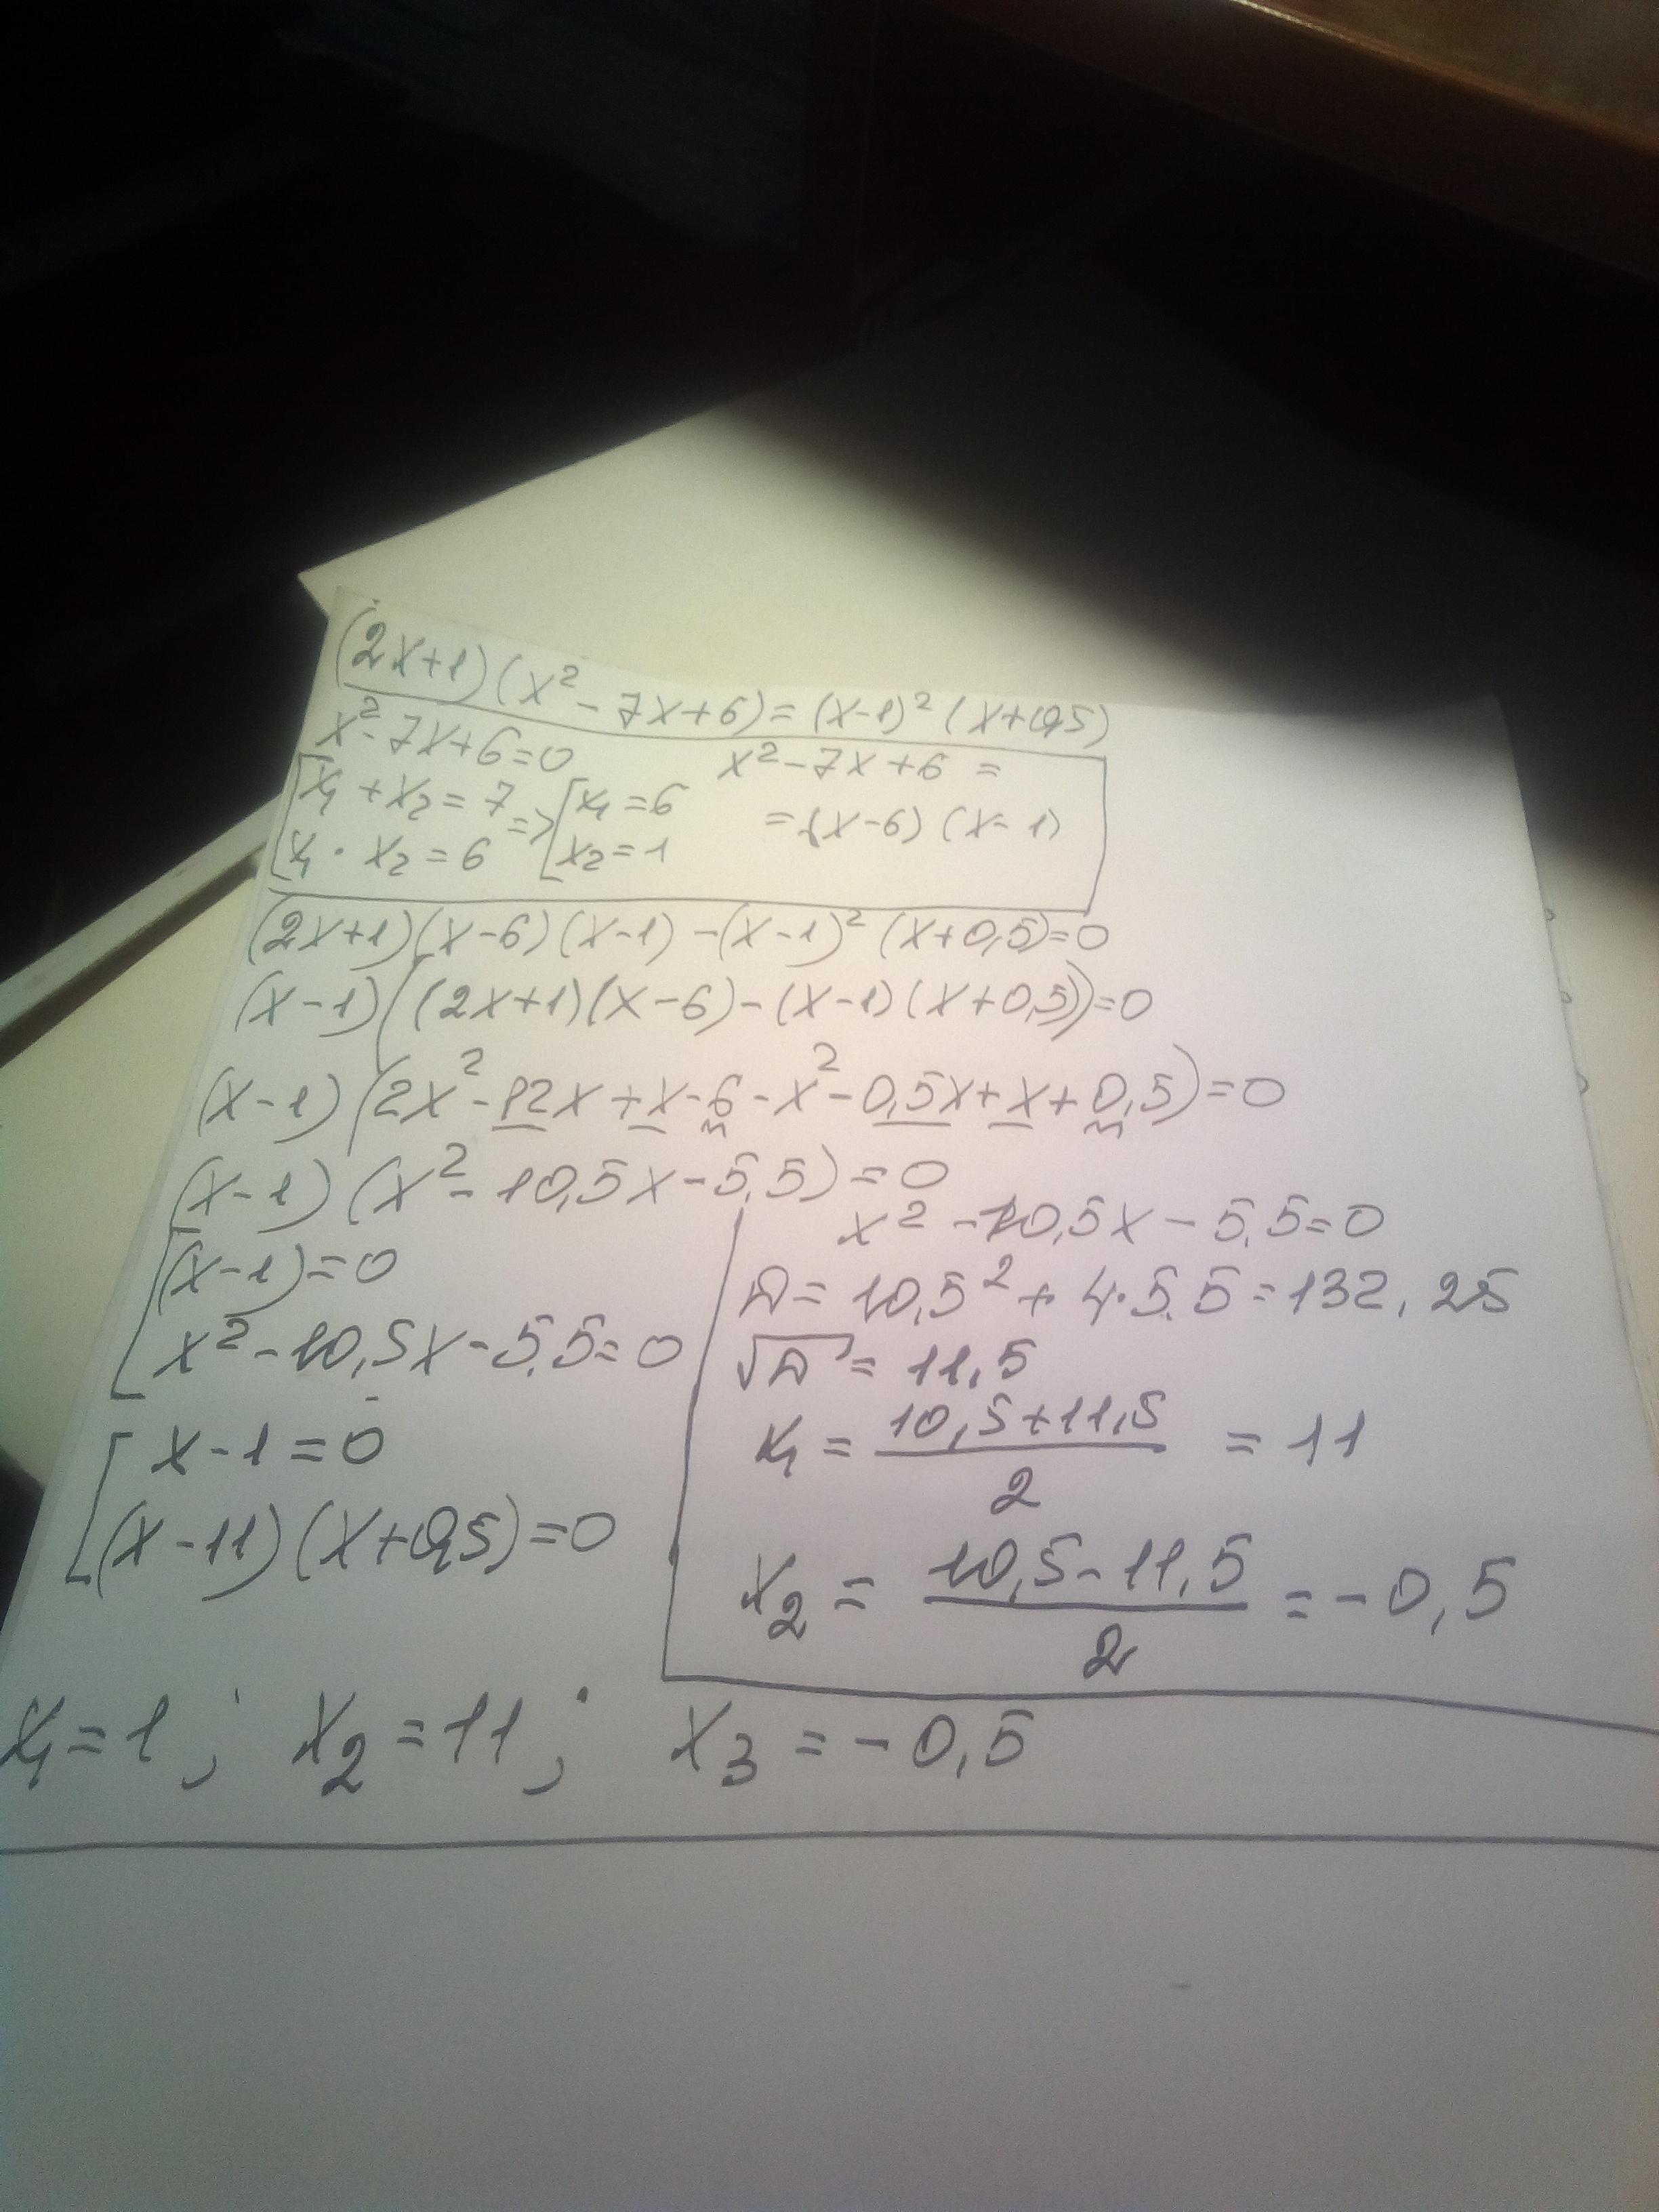 (2x+1)(x² - 7x+6) = (x-1)² (x+0,5)
x² - 7x+6=0
x₁ + x₂ = 7
x₁ · x₂ = 6
=>
x₁ = 6
x₂ = 1
x² - 7x + 6 =
= (x-6) (x-1)
(2x+1)(x-6)(x-1) - (x-1)² (x+0,5)=0
(x-1)((2x+1)(x-6)-(x-1)(x+0,5))=0
(x-1)(2x²-12x+x-6-x²-0,5x+x+0,5)=0
(x-1)(x²-10,5x-5,5)=0
(x-1)=0
x²-10,5x-5,5=0
x-1=0
(x-11)(x+0,5)=0
x²-10,5x-5,5=0
D= 10,5² + 4·5,5=132,25
√D = 11,5
x₁ = (10,5+11,5)/2 = 11
x₂ = (10,5-11,5)/2 = -0,5
x₁=1; x₂=11; x₃=-0,5